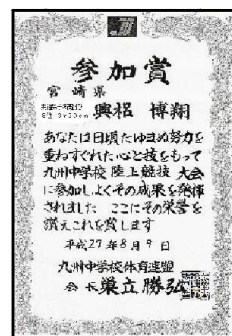 参加賞
宮崎県
興梠 博翔
あなたは日頃たゆまぬ努力を
重ねすぐれた心と技をもって
九州中学校 陸上競技 大会
に参加しよくその成果を発揮
されました ここにその栄誉を
讃えこれを賞します
平成27年8月9日
九州中学校体育連盟
会長 巣立勝弘